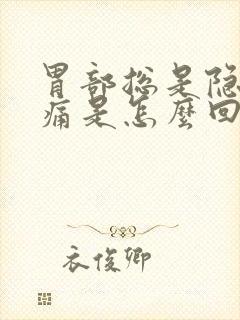 胃部总是隐
痛是怎麼回
衣俊卿